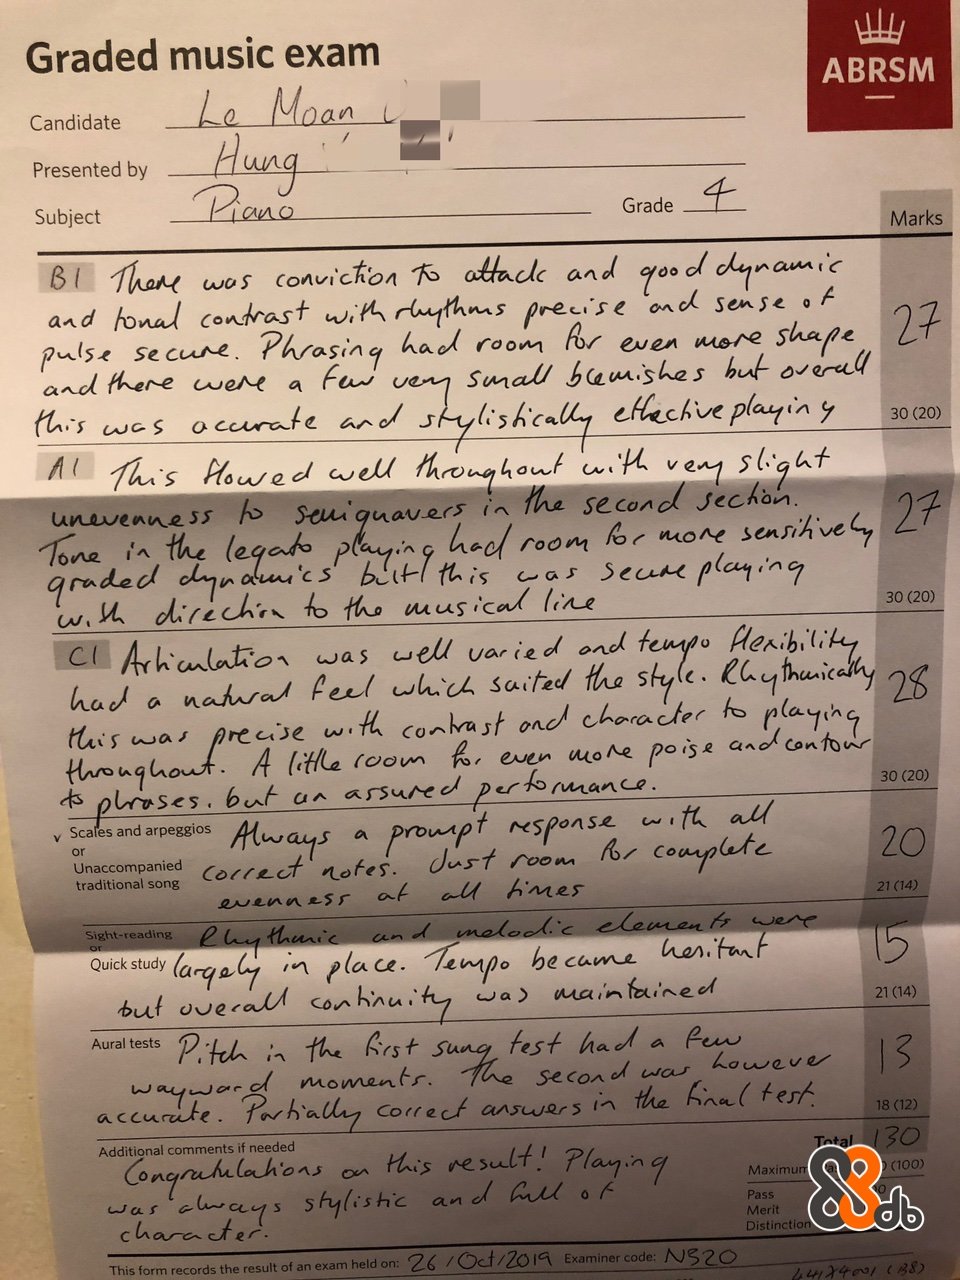 Graded music exam
ABRSM
Candidate Le Moan
Presented by Hung
Subject Piano Grade 4
Marks
B1 There was conviction to attack and good dynamic
and tonal contrast with rhythms precise and sense of
pulse secure. Phrasing had room for even more shape
and there were a few very small blemishes but overall
this was accurate and stylistically effective playing
27
30 (20)
A1 This flowed well throughout with very slight
unevenness to semiquavers in the second section.
Tone in the legato playing had room for more sensitively
graded dynamics but this was secure playing
with direction to the musical line
27
30 (20)
C1 Articulation was well varied and tempo flexibility
had a natural feel which suited the style. Rhythmically
this was precise with contrast and character to playing
throughout. A little room for even more poise and contour
to phrases, but an assured performance.
28
30 (20)
v Scales and arpeggios
or
Unaccompanied
traditional song
Always a prompt response with all
correct notes. Just room for complete
evenness at all times
20
21 (14)
Sight-reading
or
Quick study
Rhythmic and melodic elements were
largely in place. Tempo became hesitant
but overall continuity was maintained
15
21 (14)
Aural tests
Pitch in the first sung test had a few
wayward moments. The second was however
accurate. Partially correct answers in the final test.
13
18 (12)
Additional comments if needed
Congratulations on this result! Playing
was always stylistic and full of
character.
Total 130
Maximum (100)
Pass
Merit
Distinction
88db
This form records the result of an exam held on: 26/Oct/2019 Examiner code: N520